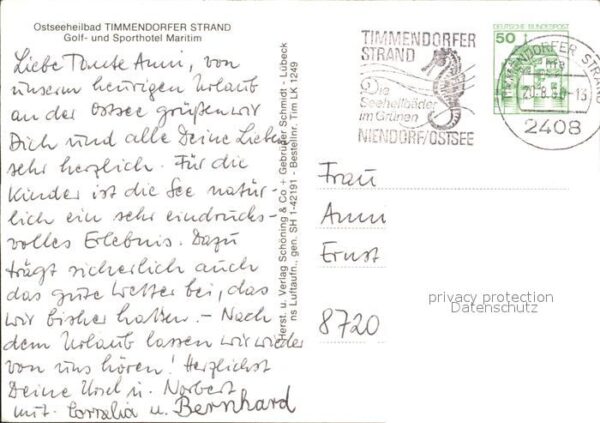 Ostseeheilbad TIMMENDORFER STRAND
Golf- und Sporthotel Maritim
Liebe Tante Anni, von
unserm heurigen Urlaub
an der Ostsee grüßen wir
Dich und alle Deine Lieben
sehr herzlich. Für die
Kinder ist die See natür-
lich ein sehr eindrucks-
volles Erlebnis. Dazu
trägt sicherlich auch
das gute Wetter bei, das
wir bisher hatten. – Nach
dem Urlaub lassen wir wieder
von uns hören! Herzlichst
Deine Ursel u. Norbert
mit Cornalia u. Bernhard
Herst. u. Verlag Schöning & Co + Gebrüder Schmidt - Lübeck
ns Luftaufn., gen. SH 1-42191 - Bestellnr. Tim LK 1249
TIMMENDORFER
STRAND
Die
Seeheilbäder
im Grünen
NIENDORF/OSTSEE
DEUTSCHE BUNDESPOST
50
TIMMENDORFER STRAND
2408
Frau
Anni
Ernst
8720
privacy protection
Datenschutz